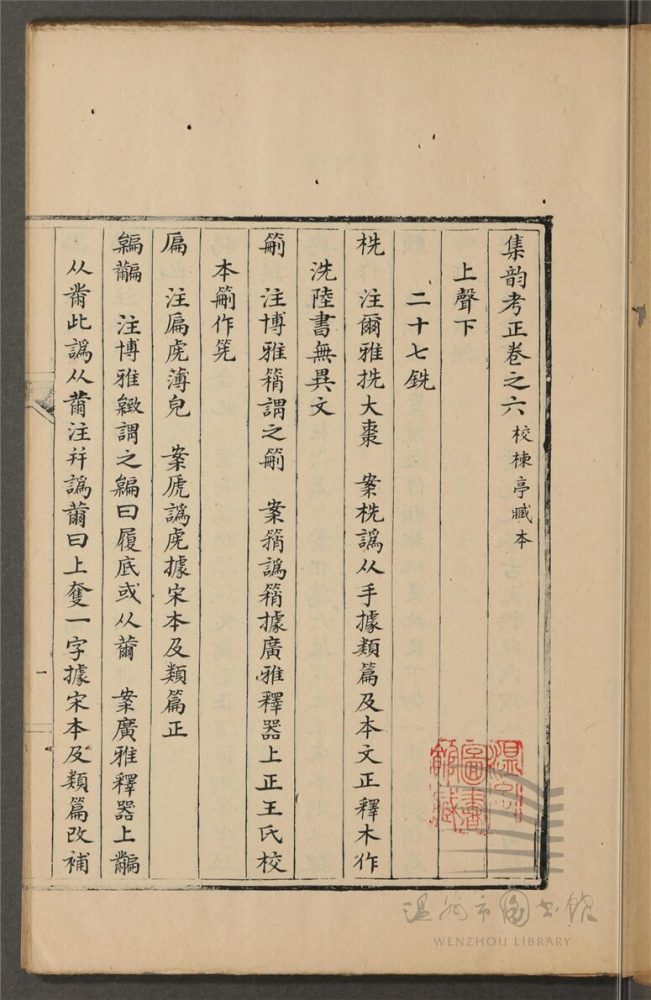 集韵考正卷之六 校棟亭臧本
上聲下
二十七銑
栊 注爾雅挩大棗 案栊譌从手據類篇及本文正釋木作
洗陸書無異文
注博雅謂之 案譌據廣雅釋器上正王氏校
本作筅
扁 注扁虒薄皃 案虒譌虎據宋本及類篇正
注博雅緻謂之曰履底或从 案廣雅釋器上
从黹此譌从注并譌曰上奪一字據宋本及類篇改補
一
溫州市圖書館藏
温州市图书馆
WENZHOU LIBRARY